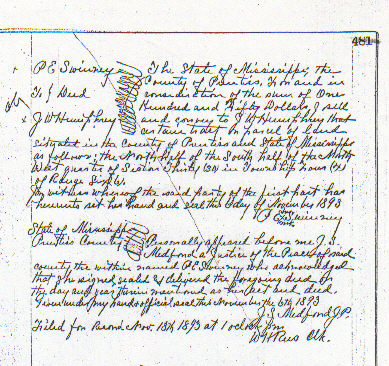 481
P E Swinney The State of Mississippi, the
County of Prentiss, For and in
To } Deed consideration of the sum of One
Hundred and Fifty Dollars, I sell
J W Humphrey and convey to J W Humphrey that
certain tract or parcel of land
situated in the County of Prentiss and State of Mississippi
as follows; the North half of the South half of the North
West quarter of Section Thirty (30) in Township four (4)
of Range Six 6.
In witness whereof the said party of the first part has
hereunto set his hand and seal this 6 day of November 1893
P E Swinney
State of Mississippi
Prentiss County Personally appeared before me J. S.
Medford a Justice of the Peace of said
county the within named P E Swinney who acknowledged
that he signed sealed & delivered the foregoing deed on
the day and year therein mentioned as his act and deed.
Given under my hand & official seal this November the 6th 1893
J. S. Medford J.P.
Filed for Record Nov. 13th 1893 at 1 oclock pm
Clk.